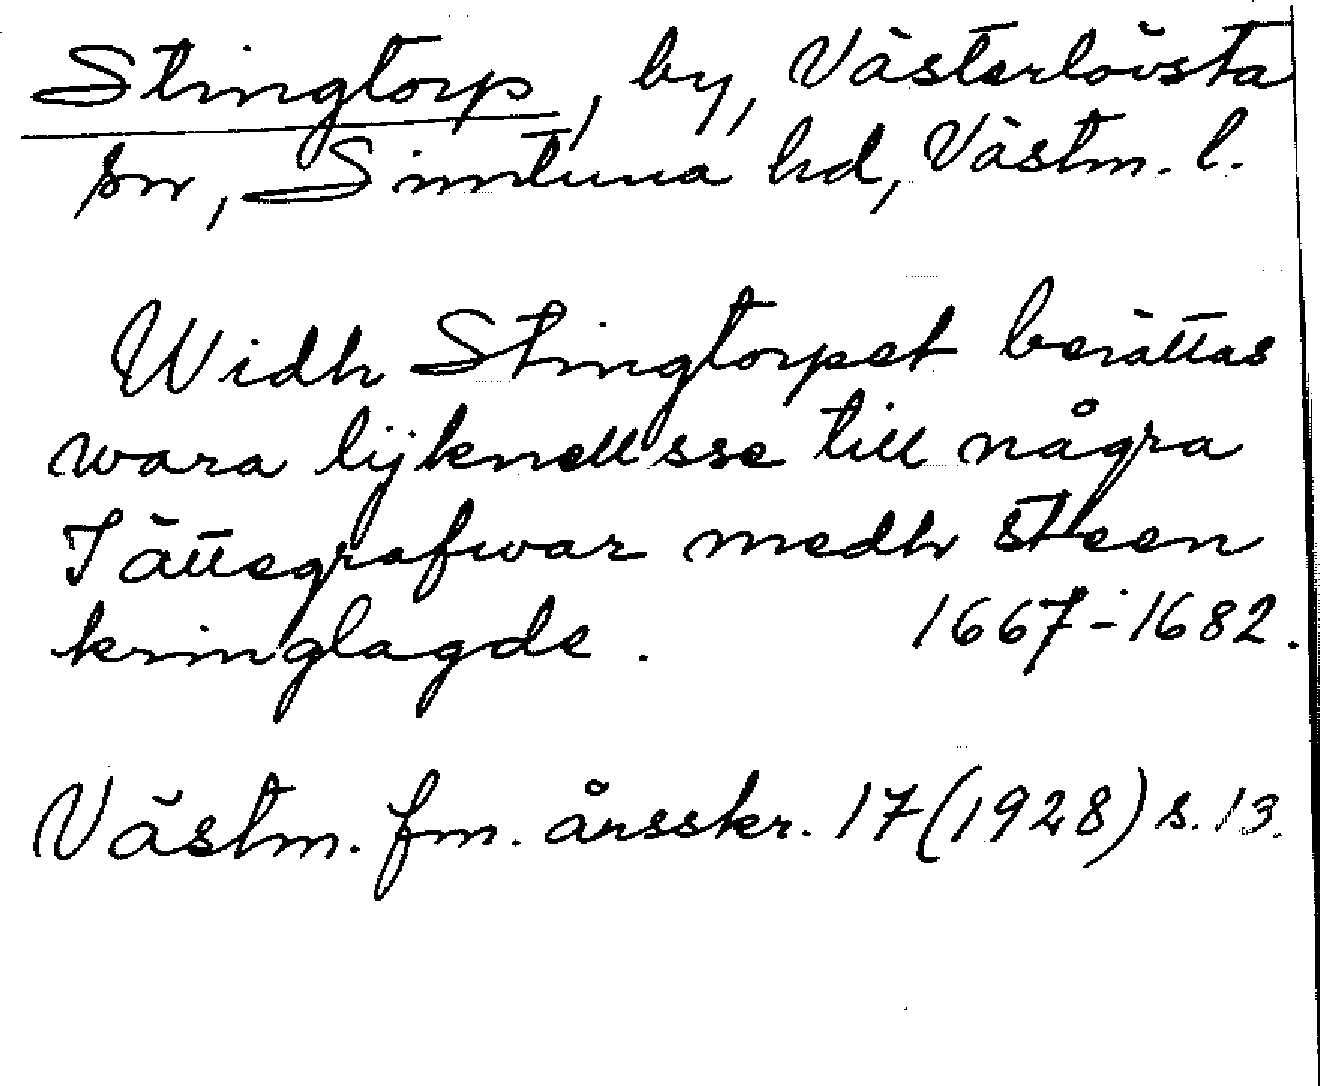 Stingtorp, by, Västerlövsta
sn, Simtuna hd, Västm. l.
Widh Stingtorpet berättas
wara lijknellsse till några
Jättegrafwar medh steen
kringlagde. 1667-1682.
Västm. fm. årsskr. 17 (1928) s. 13.